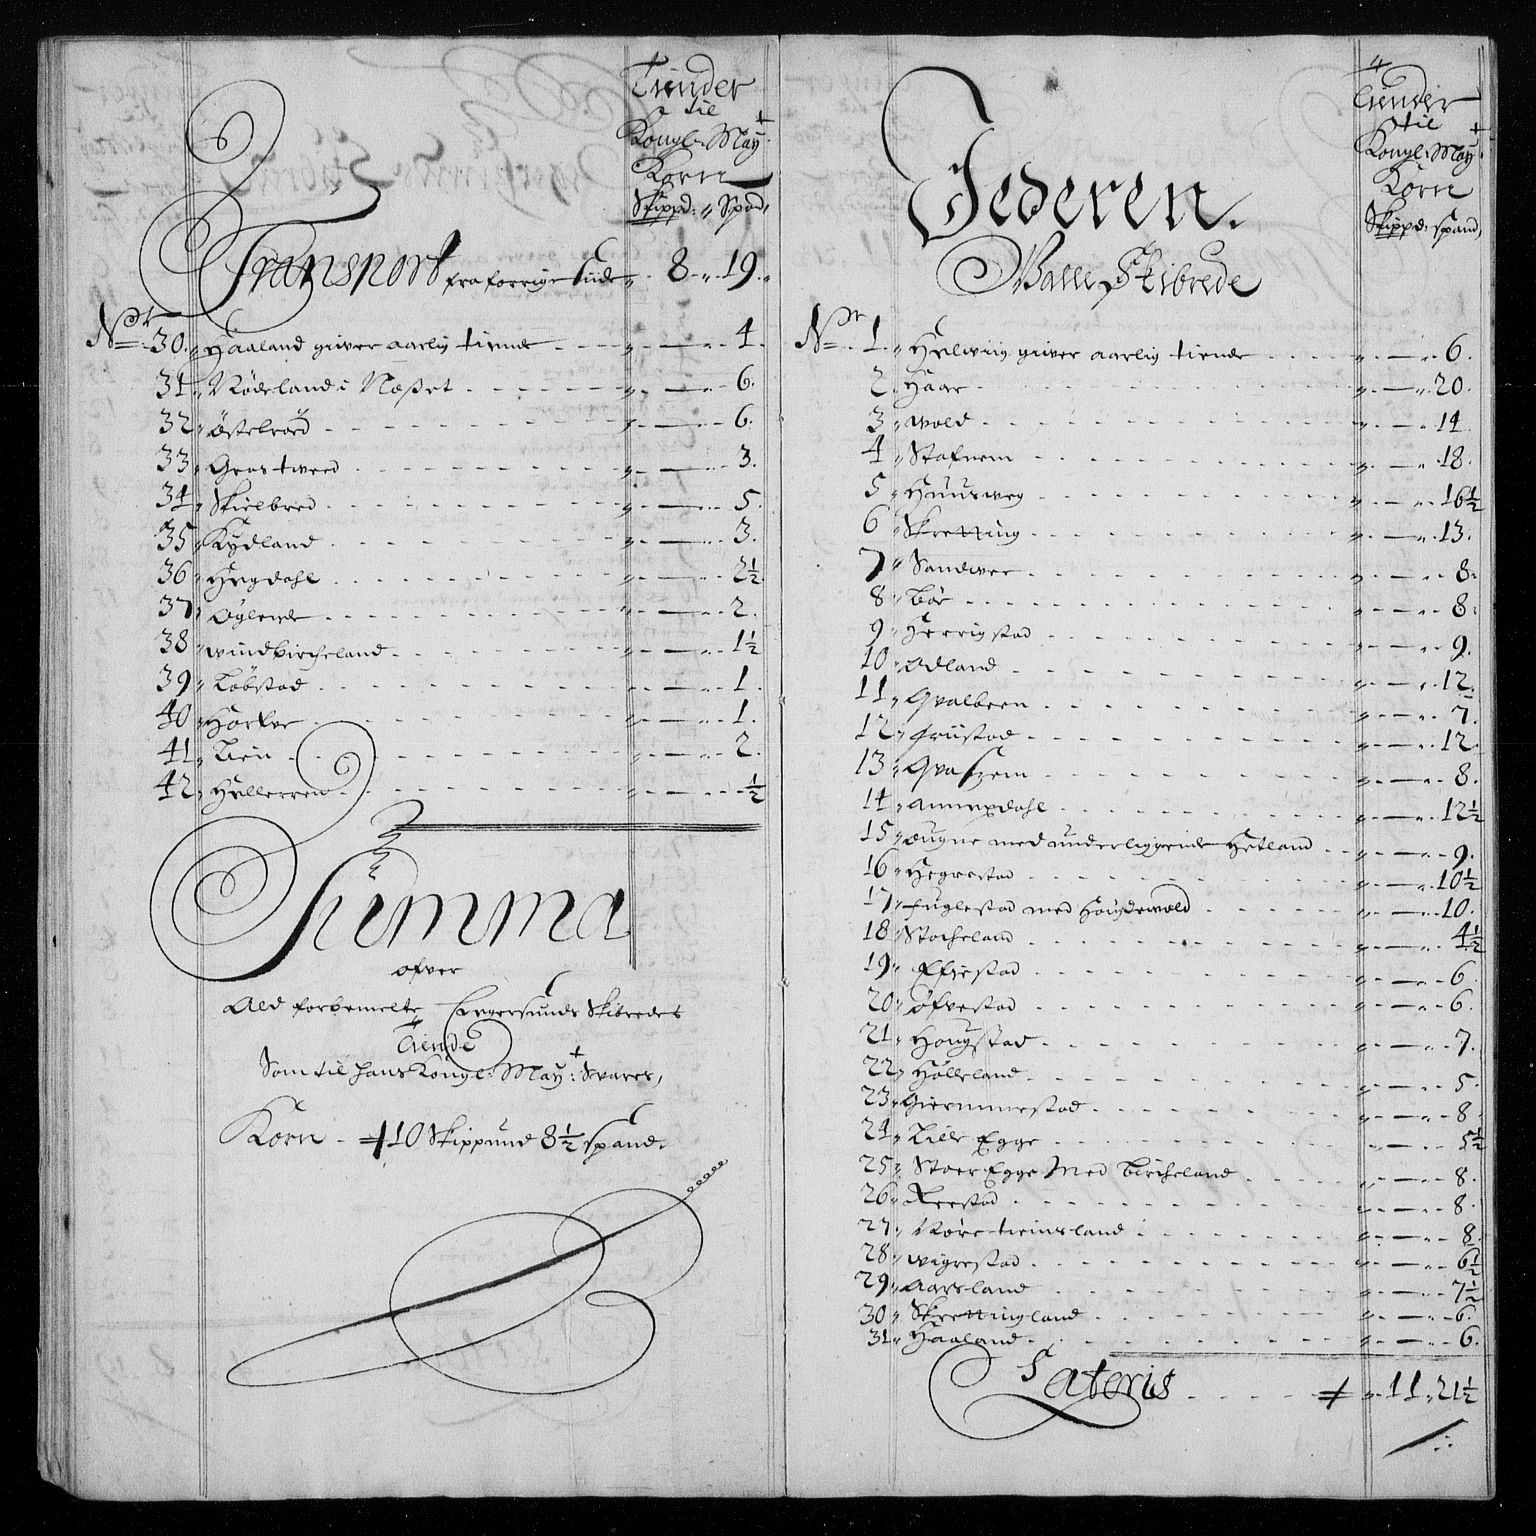 Tiender
til
Kongl: May:
Korn
Skippd: Spad,
Transport fra forrige siide 8 19.
No. 30. Haaland giver aarlig tiende 4.
31 Rödeland i Næßet 6.
32 Östebröd 6.
33 Grostweed 3.
34 Skielbred 5.
35 Kydland 3.
36 Hegdahl 2½
37 Öglende 2.
38 windbircheland 1½
39 Lobstad 1.
40 1.
41 Lien 2.
42 Helleren ½
Summa
ofver
Ald forbemelte Egersunds Skibredes
Tiende
Som til hans Kongl: May: Svares,
Korn - 10 Skippund 8½ spand.
Tiender
til
Kongl: May:
Korn
Skippd, spand,
Jederen.
Skibrede
No. 1. Helwiig giver aarlig tiende 6.
2 Haar 20.
3 wold 14.
4 Stafnem 18.
5 Huusweg 16½
6 Skretting 13.
7 Sandwee 8.
8 Bör 8.
9 Herrigstad 9.
10 Odland 12.
11 Qvalbeen 7.
12 Friistad 12.
13 8.
14 Annixdahl 12½
15 ougne med underliggende Hetland 9.
16 Hegrestad 10½
17 Fuglestad med Hougdewold 10.
18 Stocheland 4½
19 Efiestad 6.
20 öfvestad 6.
21 Hougstad 7.
22 Hölleland 5.
23 Giermmestad 8.
24 Lille Egge 5½
25 Stoer Egge Med Bircheland 8.
26 Reestad 8.
27 8.
28 wigrestad 6½
29 Aarsland 7½
30 Skrettingland 6.
31 Haaland 6.
Lateris 11. 21½